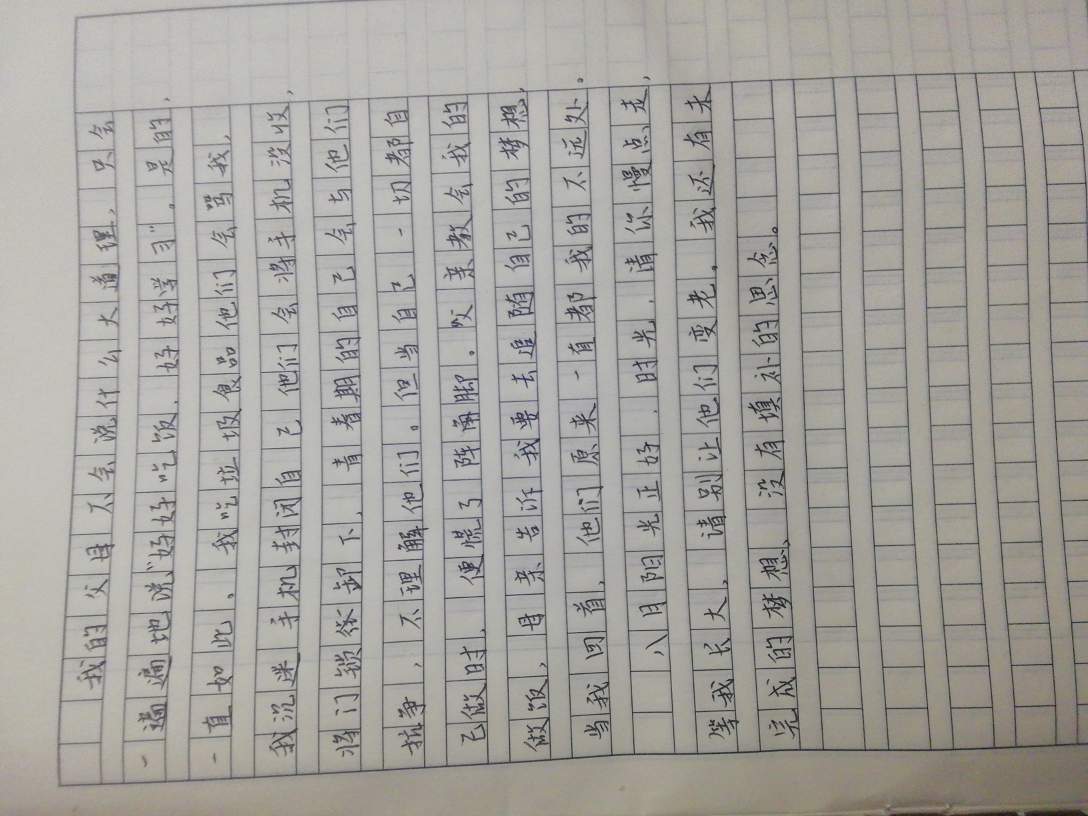 我的父母不会说什么大道理，只会
一遍遍地说“好好吃饭，好好学习”。是的，
一直如此。我吃垃圾食品他们会骂我，
我沉迷手机封闭自己他们会将手机没收，
将门锁拆卸下，青春期的自己会与他们
抗争，不理解他们。但当自己一切都自
己做时，便慌了阵角脚。父亲教会我的
做饭，母亲告诉我要去追随自己的梦想，
当我回首，他们原来一直都我的不远处。
八月阳光正好，时光，请你慢点走，
等我长大，请别让他们变老。我还有未
完成的梦想、没有填补的思念。